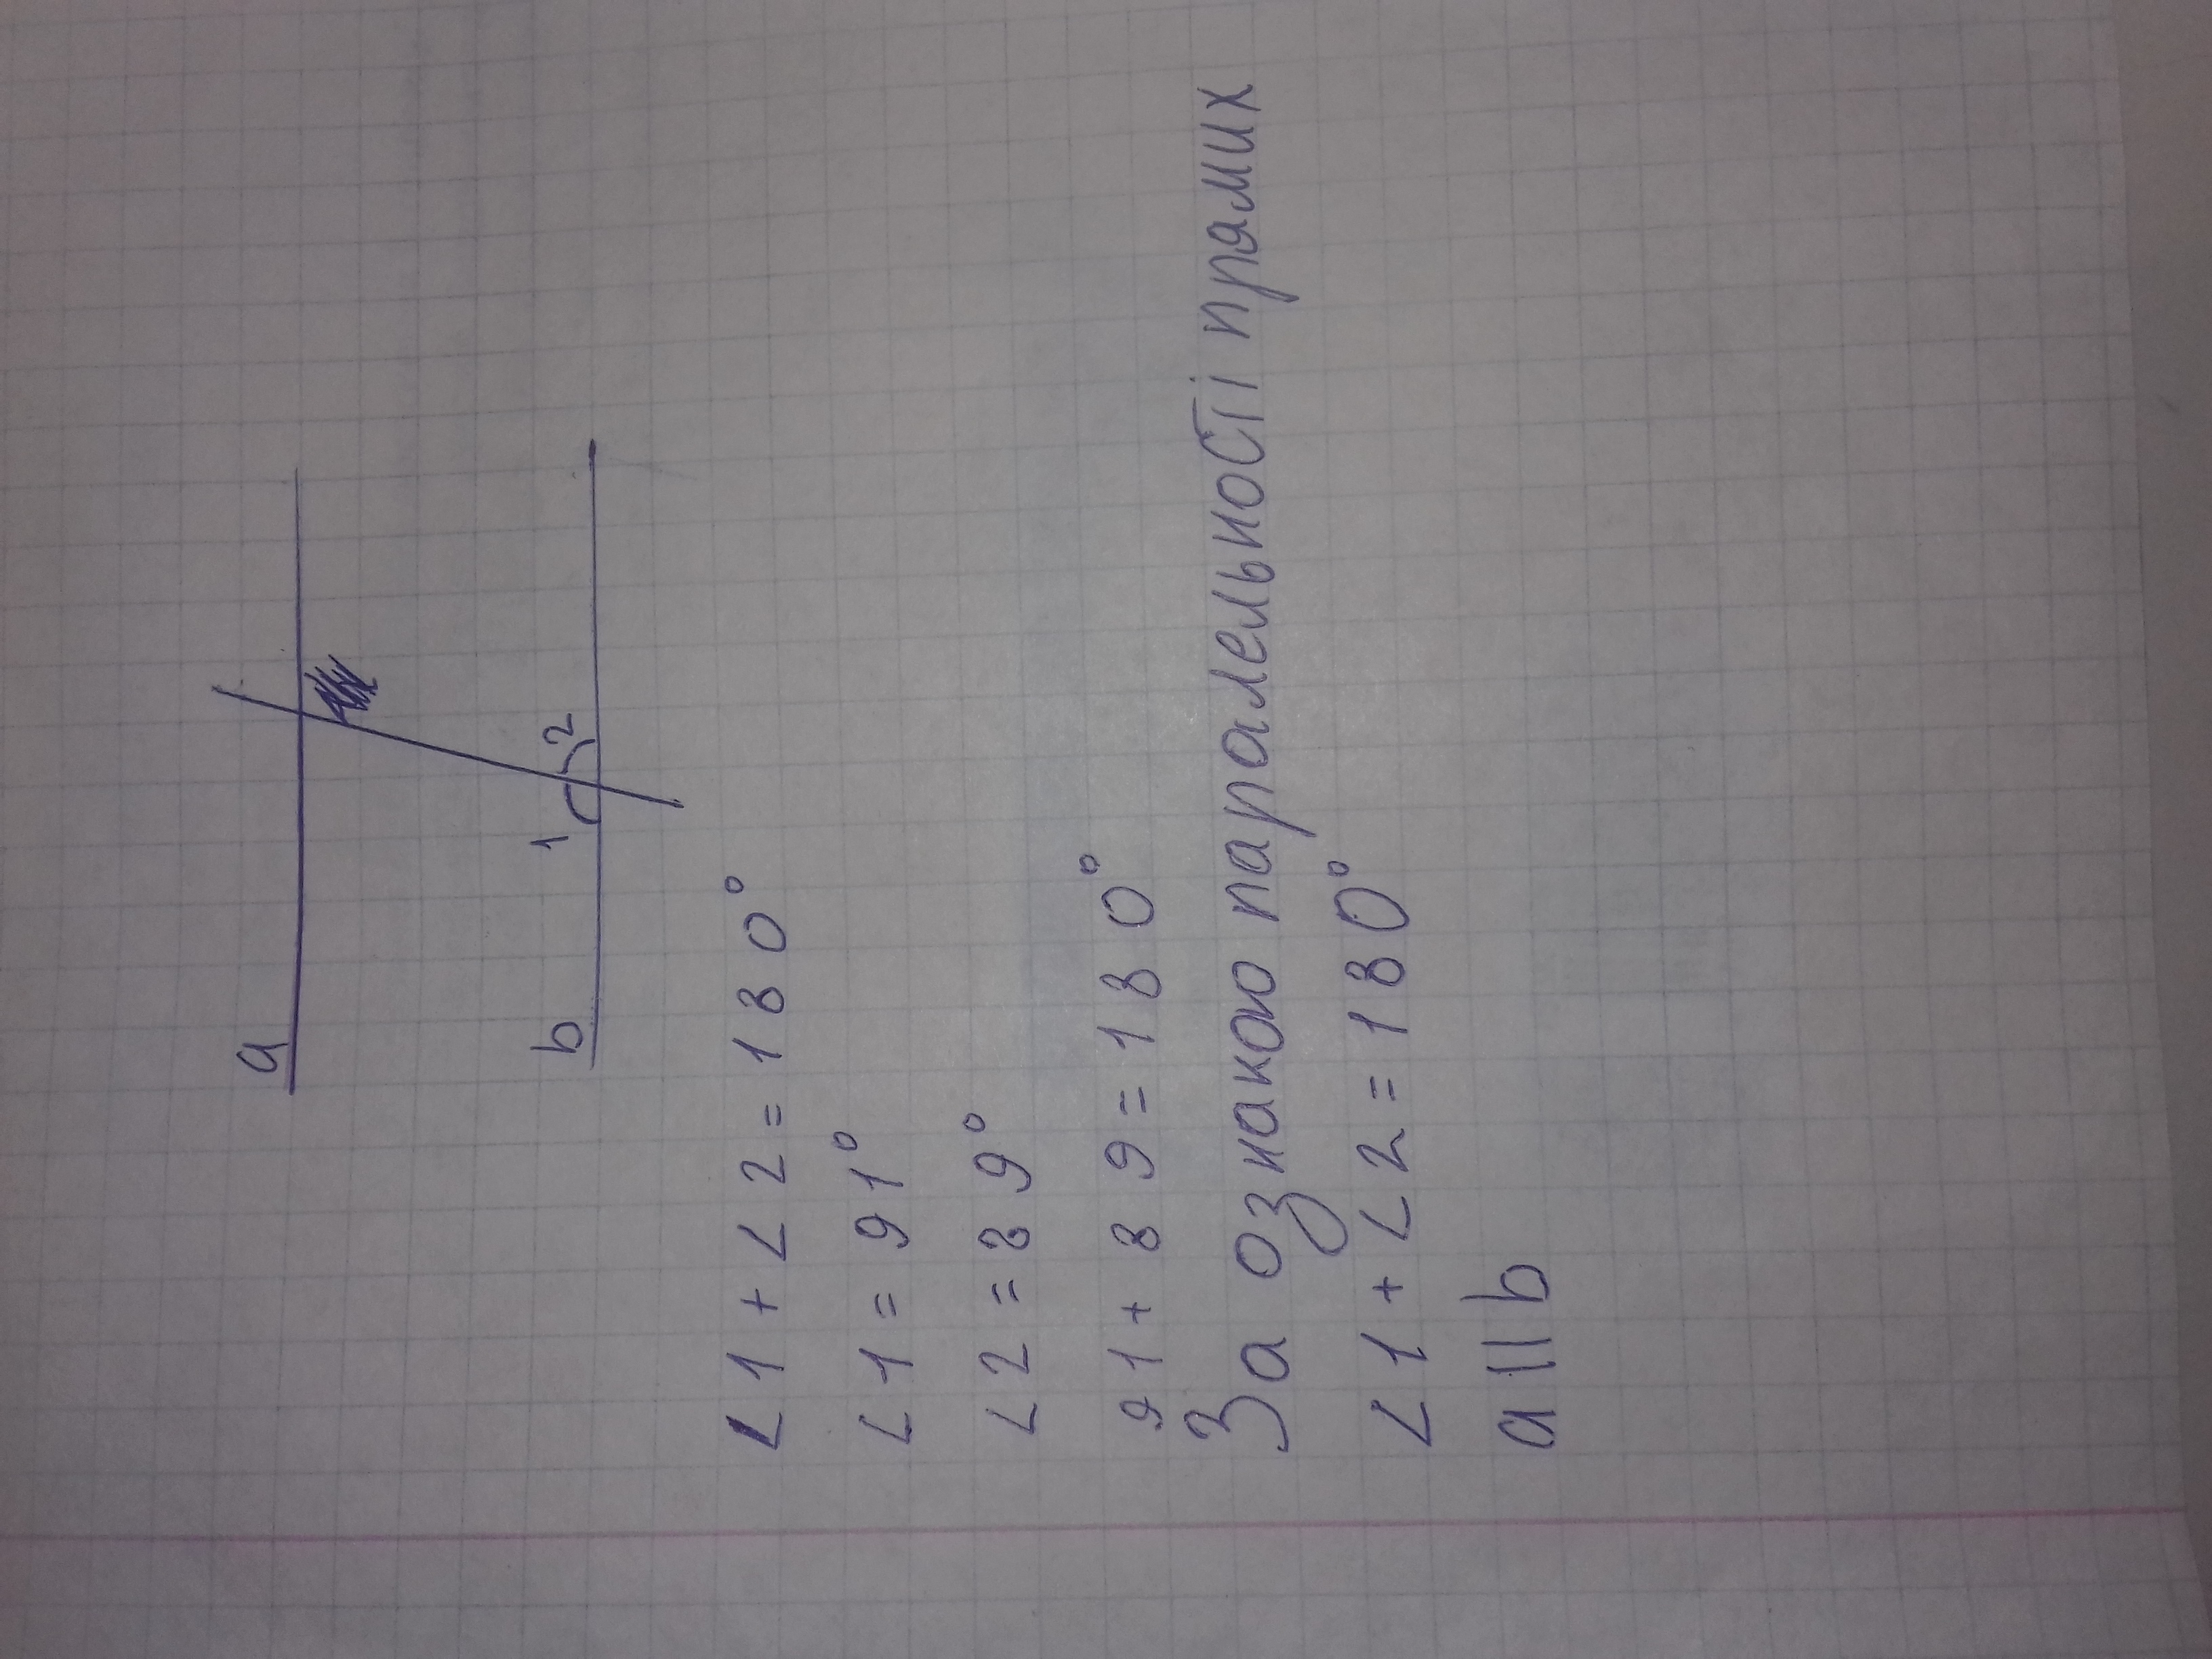 a
b
1
2
∠1+∠2=180°
∠1=91°
∠2=89°
91+89=180°
За ознакою паралельності прямих
∠1+∠2=180°
a||b